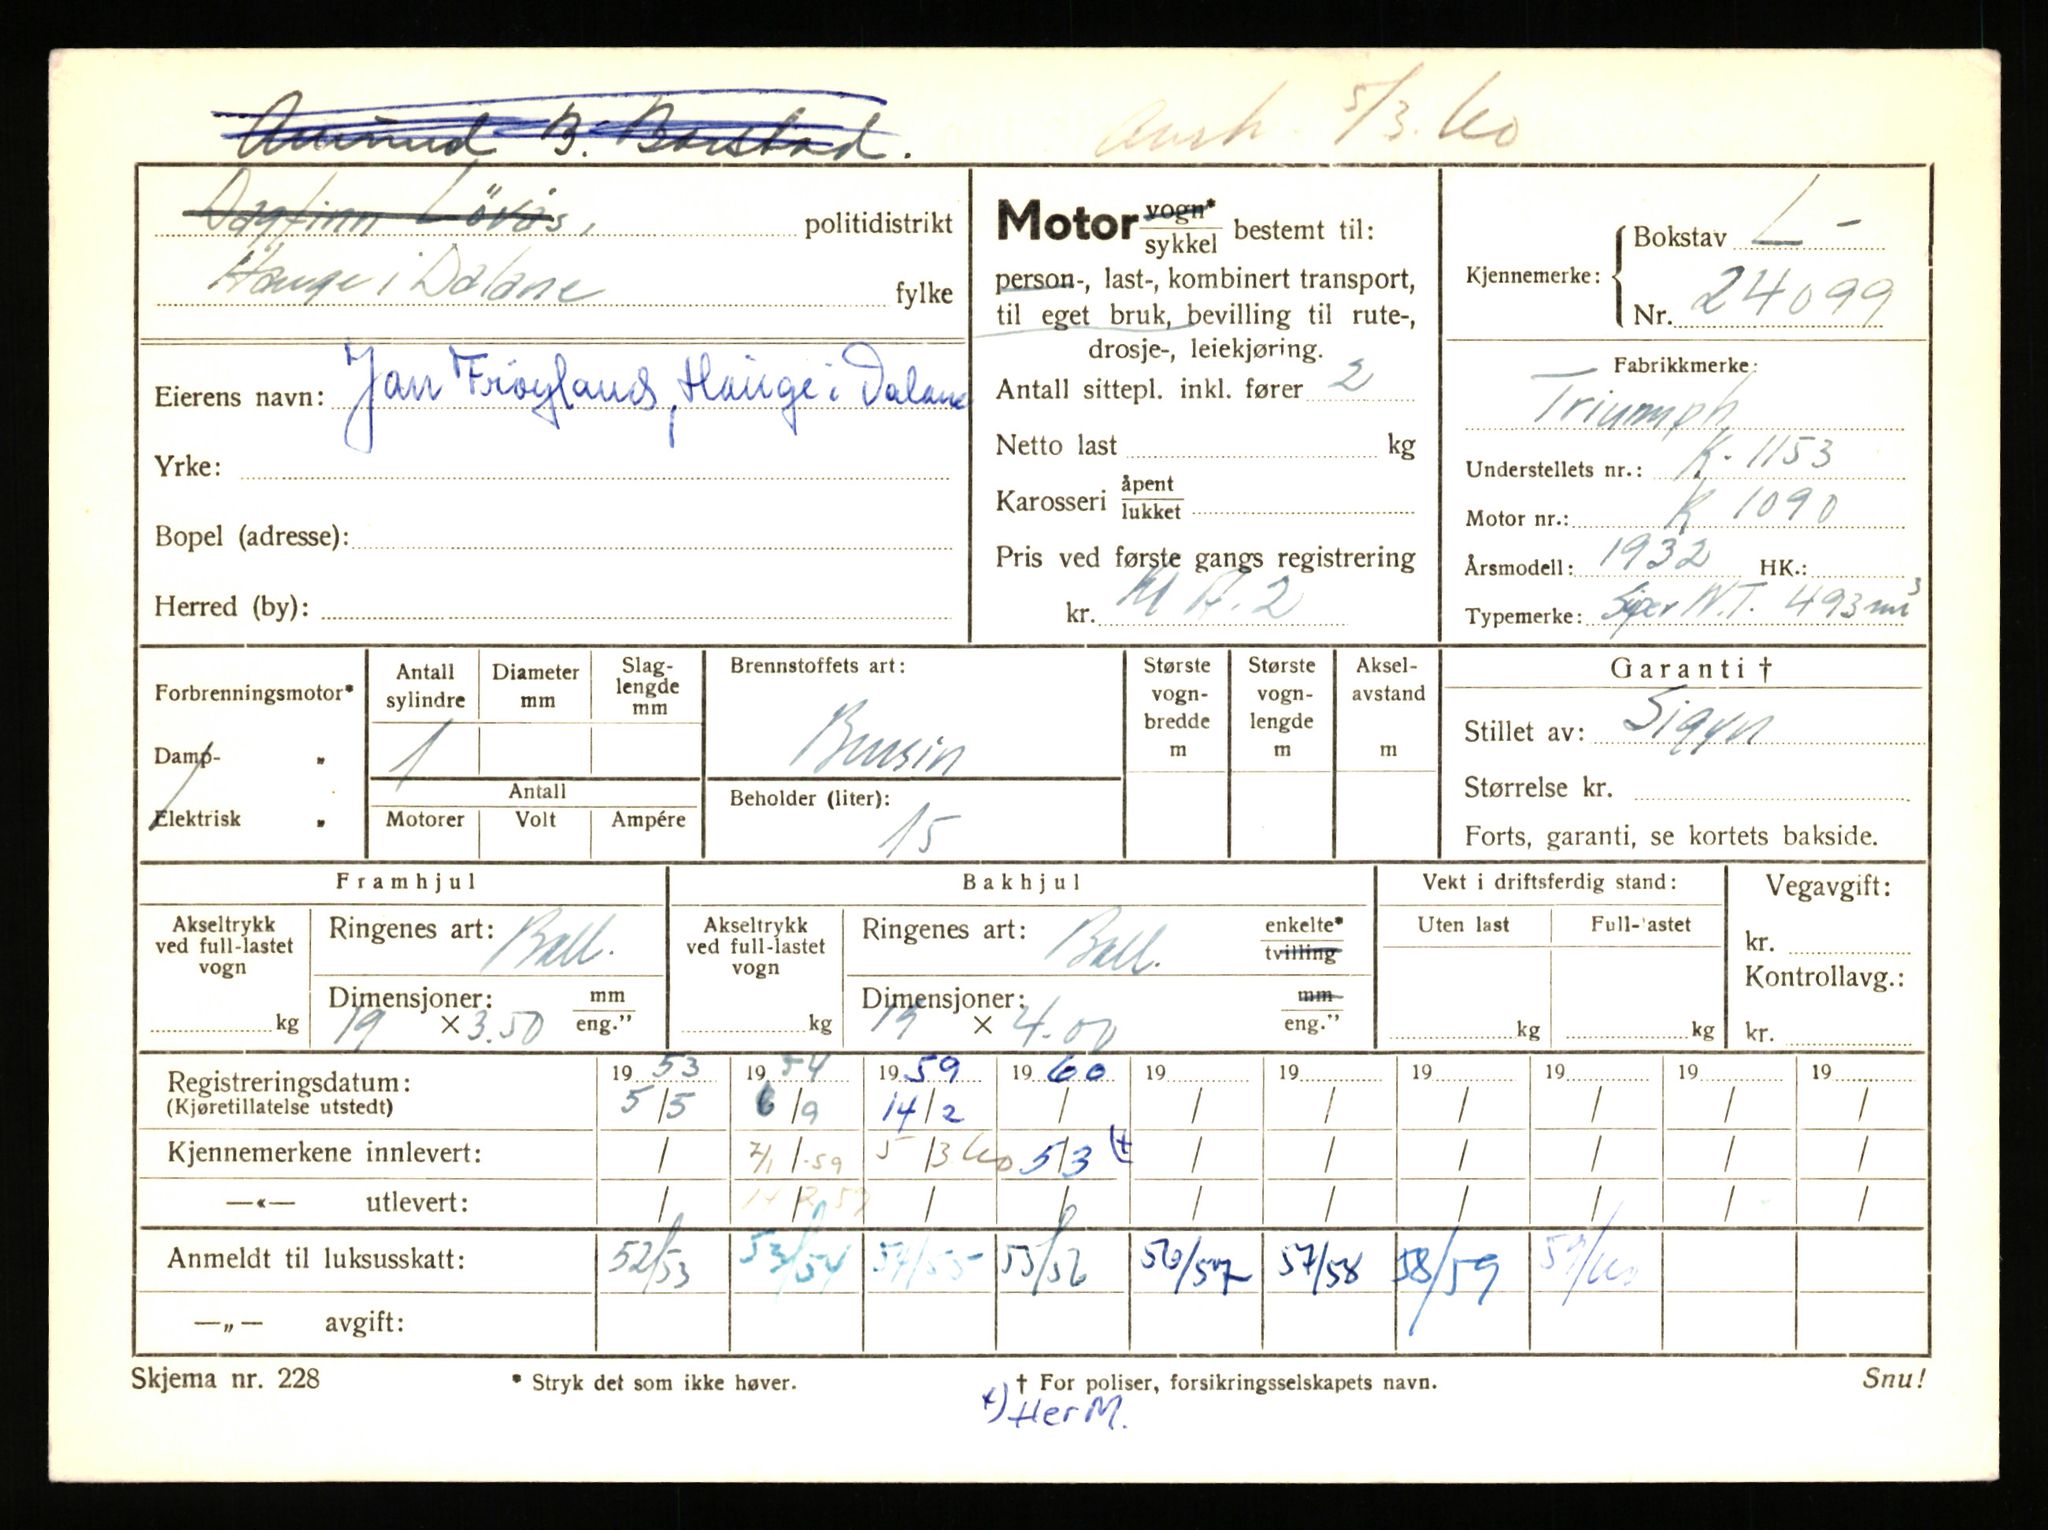 Amund B. Barstad.
Avsk. 5/3.60
Dagfinn Lövås, politidistrikt
Hauge i Dalane fylke
Eierens navn: Jan Frøyland, Hauge i Dalane
Yrke:
Bopel (adresse):
Herred (by):
Motor vogn* sykkel bestemt til:
person-, last-, kombinert transport,
til eget bruk, bevilling til rute-,
drosje-, leiekjøring.
Antall sittepl. inkl. fører 2
Netto last kg
Karosseri åpent lukket
Pris ved første gangs registrering
kr. M A. 2
Kjennemerke: Bokstav L-
Nr. 24099
Fabrikkmerke:
Triumph
Understellets nr.: K. 1153
Motor nr.: K 1090
Årsmodell: 1932 HK.:
Typemerke: Siper N.T. 493 m³
Forbrenningsmotor*
Damp- „
Elektrisk „
Antall sylindre Diameter mm Slag-lengde mm
1
Antall
Motorer Volt Ampére
Brennstoffets art:
Bensin
Beholder (liter):
15
Største vogn-bredde m
Største vogn-lengde m
Aksel-avstand m
Garanti †
Stillet av: Sigyn
Størrelse kr.
Forts, garanti, se kortets bakside.
Framhjul
Akseltrykk ved full-lastet vogn kg
Ringenes art: Ball.
Dimensjoner: mm eng."
19 × 3.50
Bakhjul
Akseltrykk ved full-lastet vogn kg
Ringenes art: Ball. enkelte* tvilling
Dimensjoner: mm eng."
19 × 4.00
Vekt i driftsferdig stand:
Uten last Full-lastet
kg kg
Vegavgift:
kr.
Kontrollavg.:
kr.
Registreringsdatum: 1953 1954 1959 1960 19 19 19 19 19 19
(Kjøretillatelse utstedt) 5/5 6/9 14/2 / / / / / / /
Kjennemerkene innlevert: / 7/1 -59 5/3 60 5/3 +) / / / / / /
—«— utlevert: / 14/2 59 / / / / / / / /
Anmeldt til luksusskatt: 52/53 53/54 54/55 55/56 56/57 57/58 58/59 59/60
—„— avgift:
Skjema nr. 228 * Stryk det som ikke høver. † For poliser, forsikringsselskapets navn. Snu!
+) Her M.